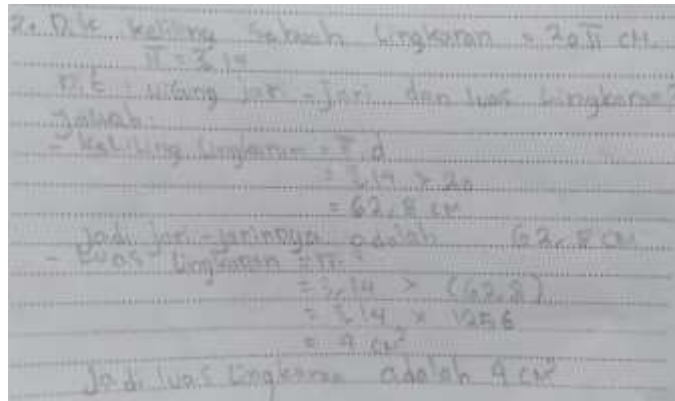 2. Dik keliling Sebuah Lingkaran = 20π cm
π = 3,14
Dit : Hitung jari-jari dan luas Lingkaran?
Jawab:
- Keliling Lingkaran = π.d
= 3,14 x 20
= 62,8 cm
Jadi jari-jarinnya adalah 62,8 cm
- Luas Lingkaran = πr²
= 3,14 x (62,8)
= 3,14 x 1256
= 4 cm²
Jadi luas Lingkaran adalah 4 cm²